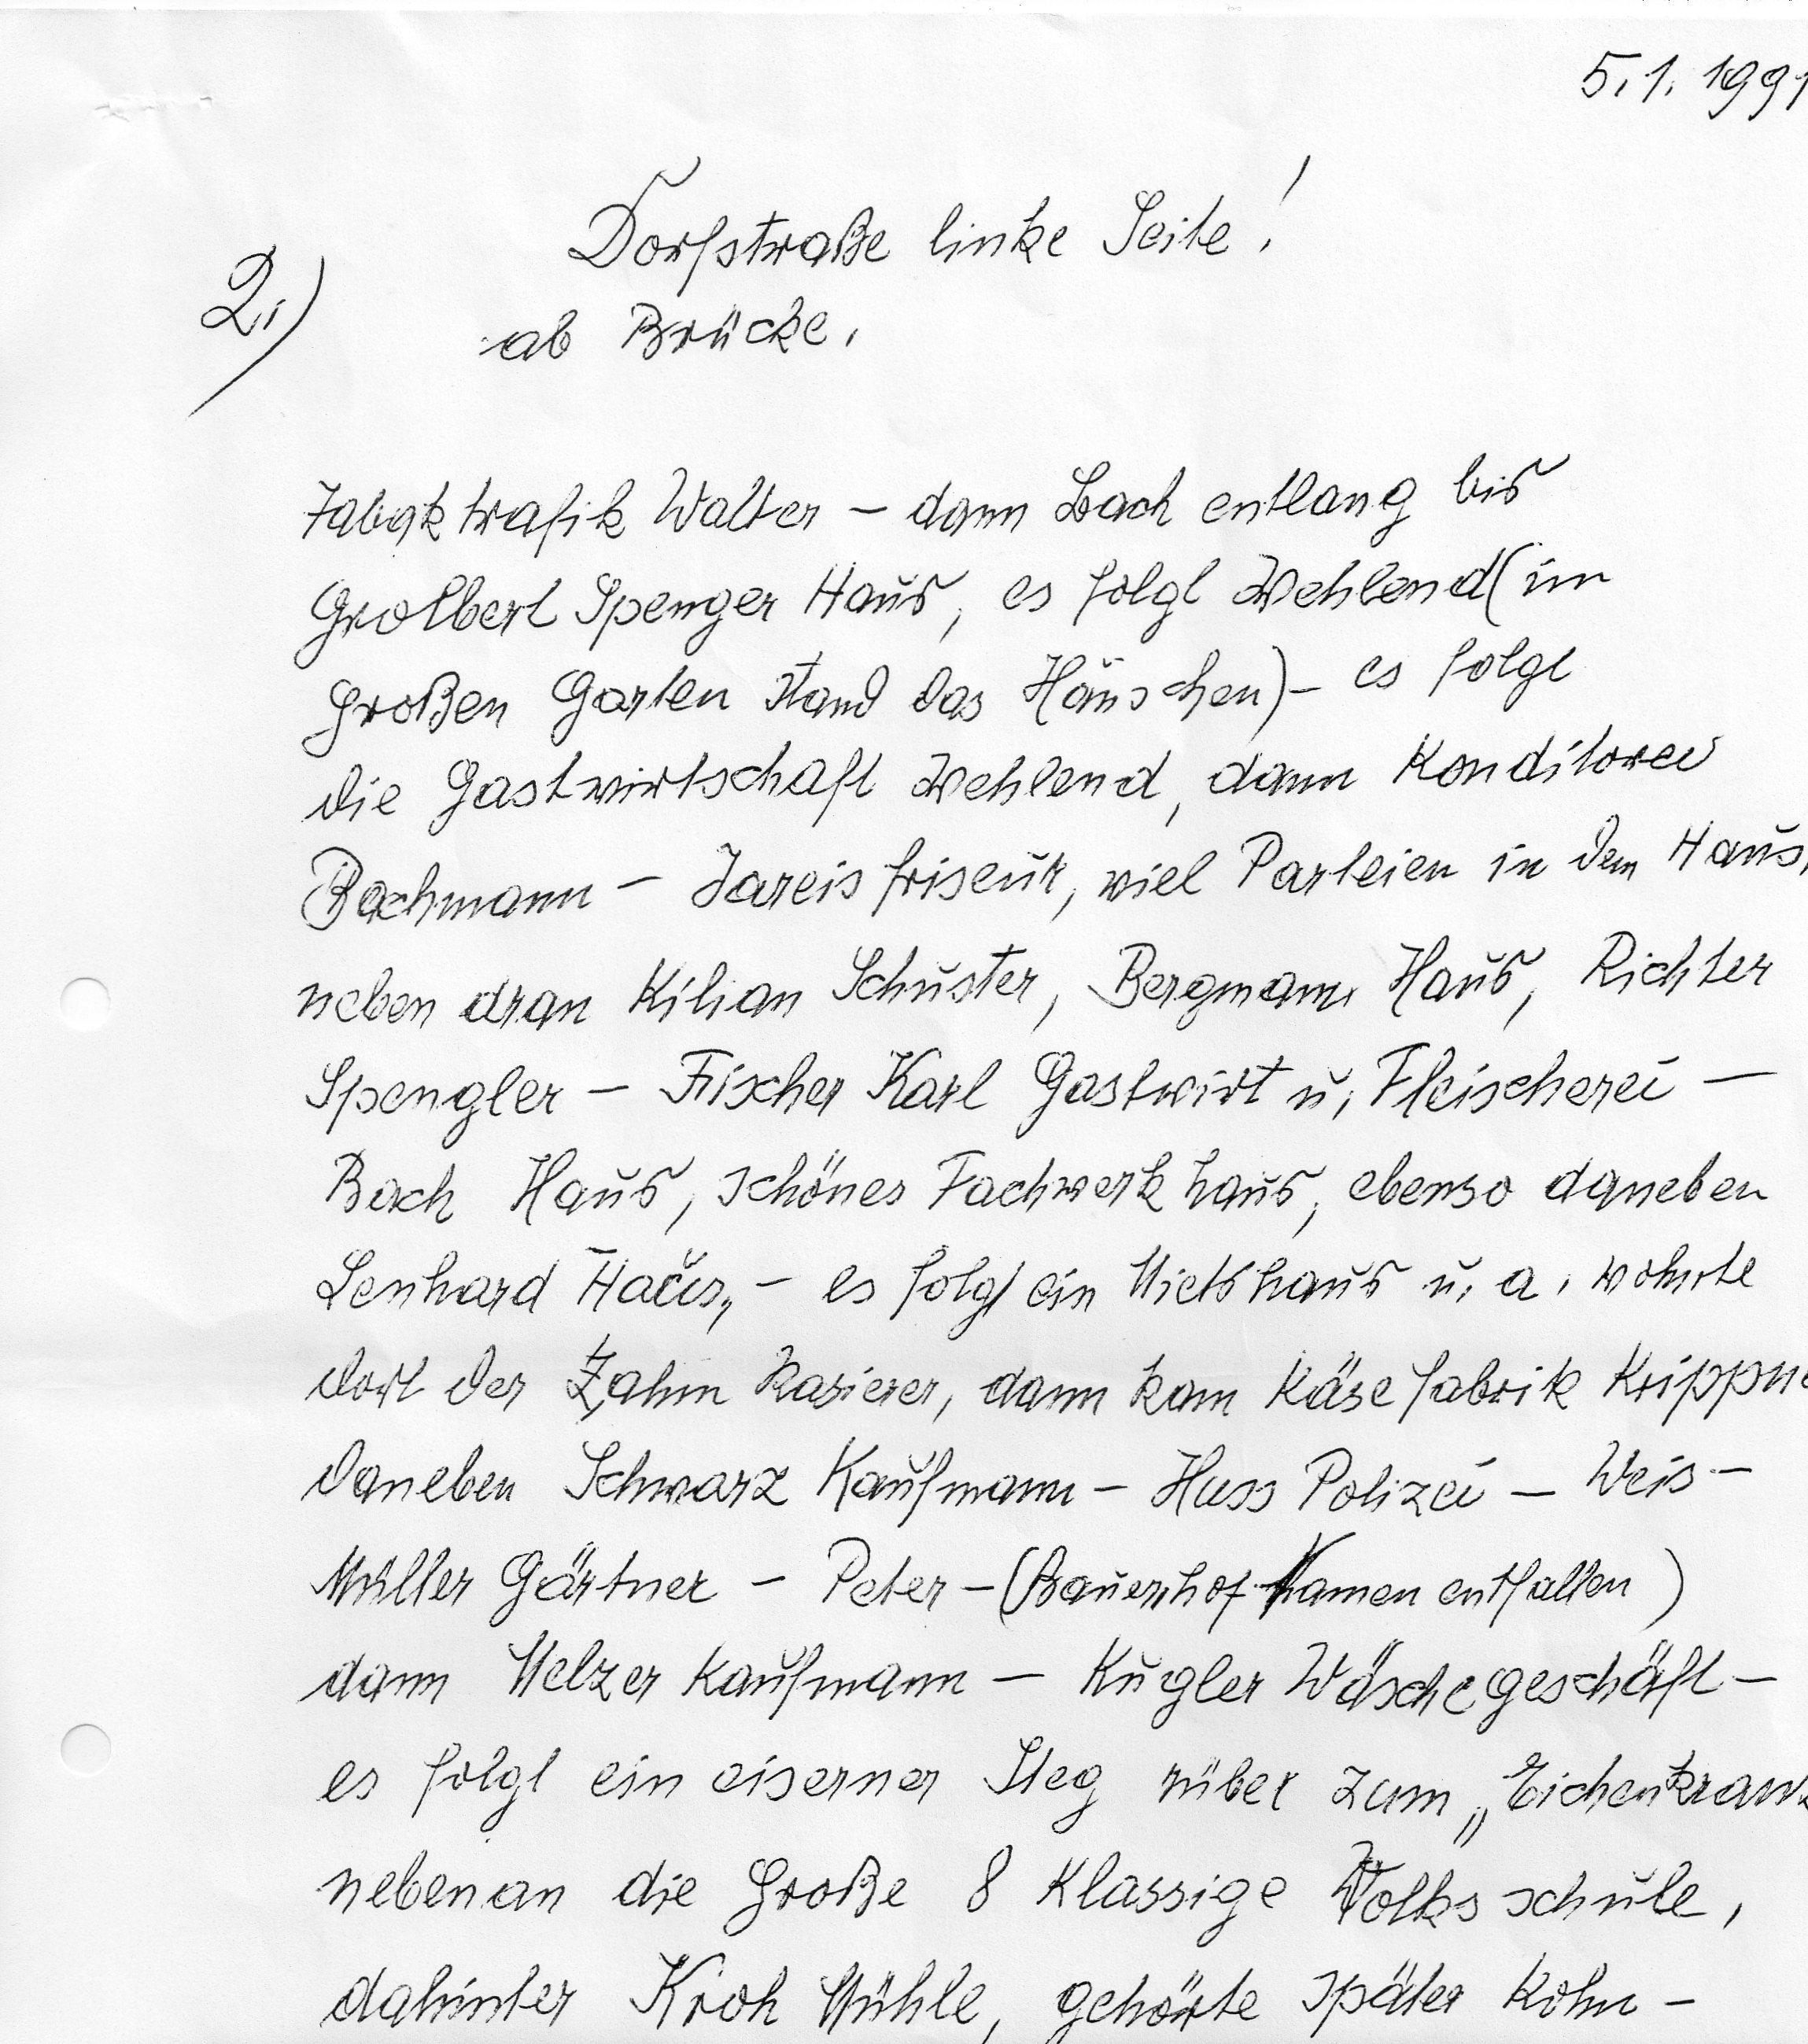 5.1.1991
Dorfstraße linke Seite!
2.)
ab Brücke.
Tabaktrafik Walter – dann Bach entlang bis
Grolbert Spenger Haus, es folgt Wehlend (im
großen Garten stand das Häuschen) – es folgt
die Gastwirtschaft Wehlend, dann Konditorei
Bachmann – Jareis friseur, viel Parteien in dem Haus,
neben dran Kilian Schuster, Bergmann Haus, Richter
Spengler – Fischer Karl Gastwirt u. Fleischerei –
Bach Haus, schönes Fachwerkhaus, ebenso daneben
Lenhard Haus, – es folgt ein Mietshaus u. a. wohnte
dort der Zahm Rasierer, dann kam Käsefabrik Krippne
daneben Schwarz Kaufmann – Huss Polizei – Weis –
Müller Gärtner – Peter – (Bauernhof Namen entfallen)
dann Melzer Kaufmann – Kugler Wäschegeschäft –
es folgt ein eiserner Steg rüber zum „Eichenkranz
nebenan die Große 8 Klassige Volksschule,
dahinter Kroh Mühle, gehörte später Kohn –